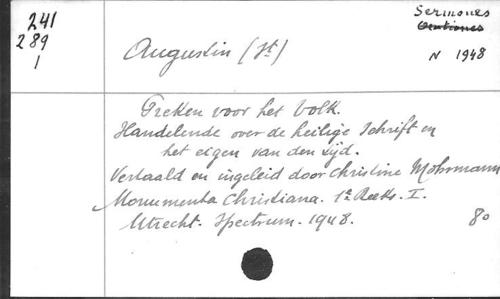 241
289
1
Sermones
Orationes
Augustin (St)
N 1948
Preken voor het Volk.
Handelende over de heilige Schrift en
het eigen van den tijd.
Vertaald en ingeleid door Christine Mohrmann
Monumenta Christiana. 1e Reeks. I.
Utrecht. Spectrum. 1948.
80